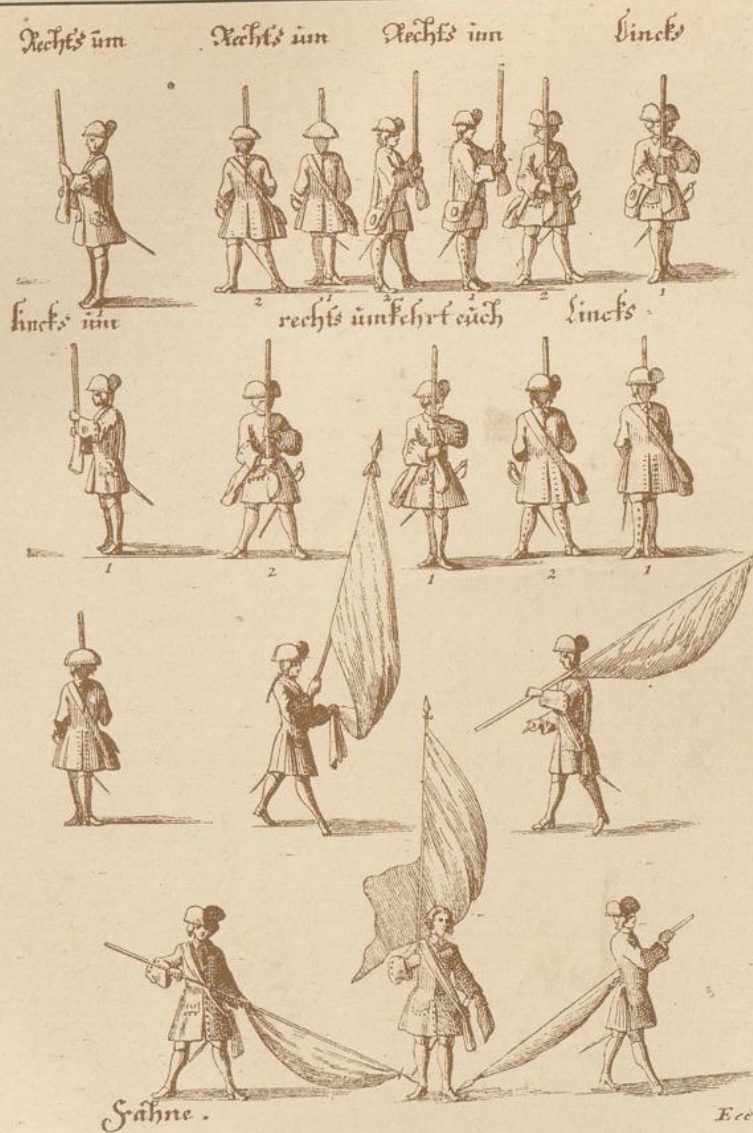 Rechts um Rechts um Rechts um Lincks
2 1 2 1 2 1
lincks um rechts umkehrt euch Lincks
1 2 1 2 1
Fahne.
Ecc